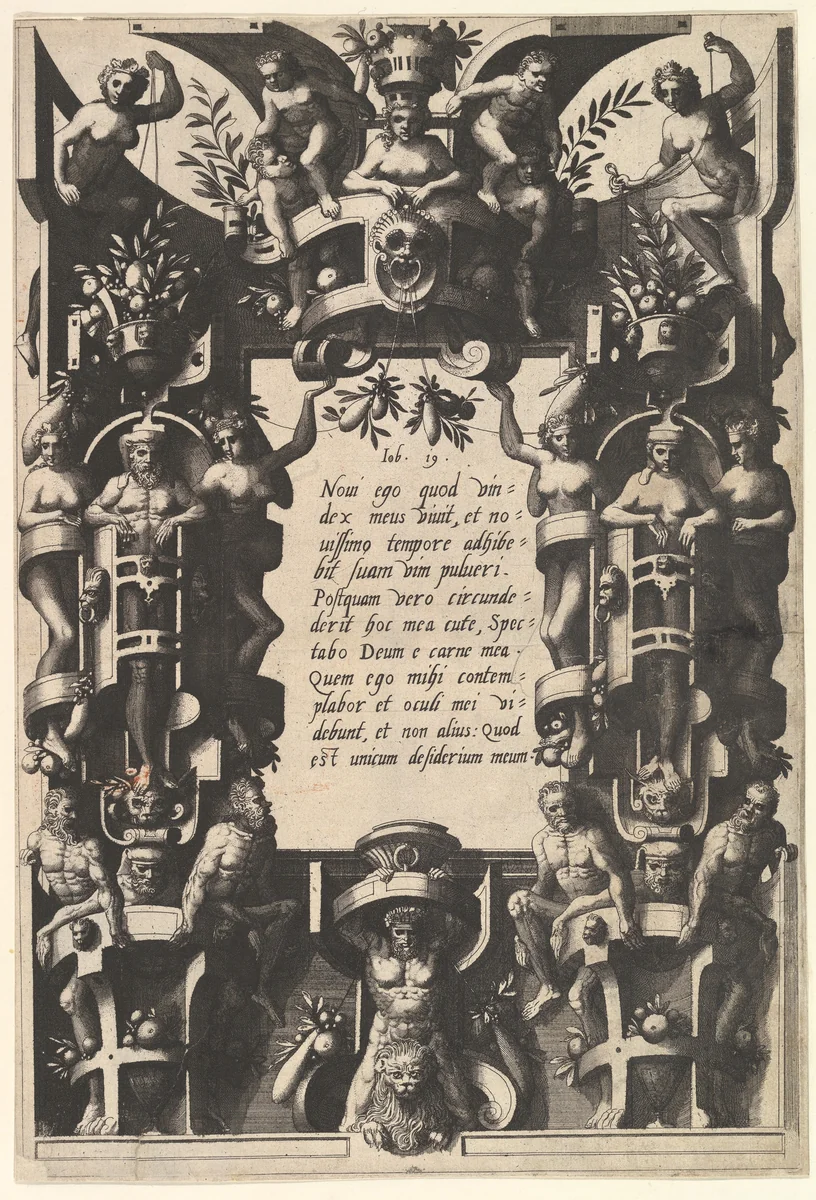 Iob. 19.
Noui ego quod vin=
dex meus viuit, et no=
uissimo tempore adhibe=
bit suam vim pulueri.
Postquam vero circunde=
derit hoc mea cute, Spec=
tabo Deum e carne mea.
Quem ego mihi contem=
plabor et oculi mei vi=
debunt, et non alius: Quod
est unicum desiderium meum.